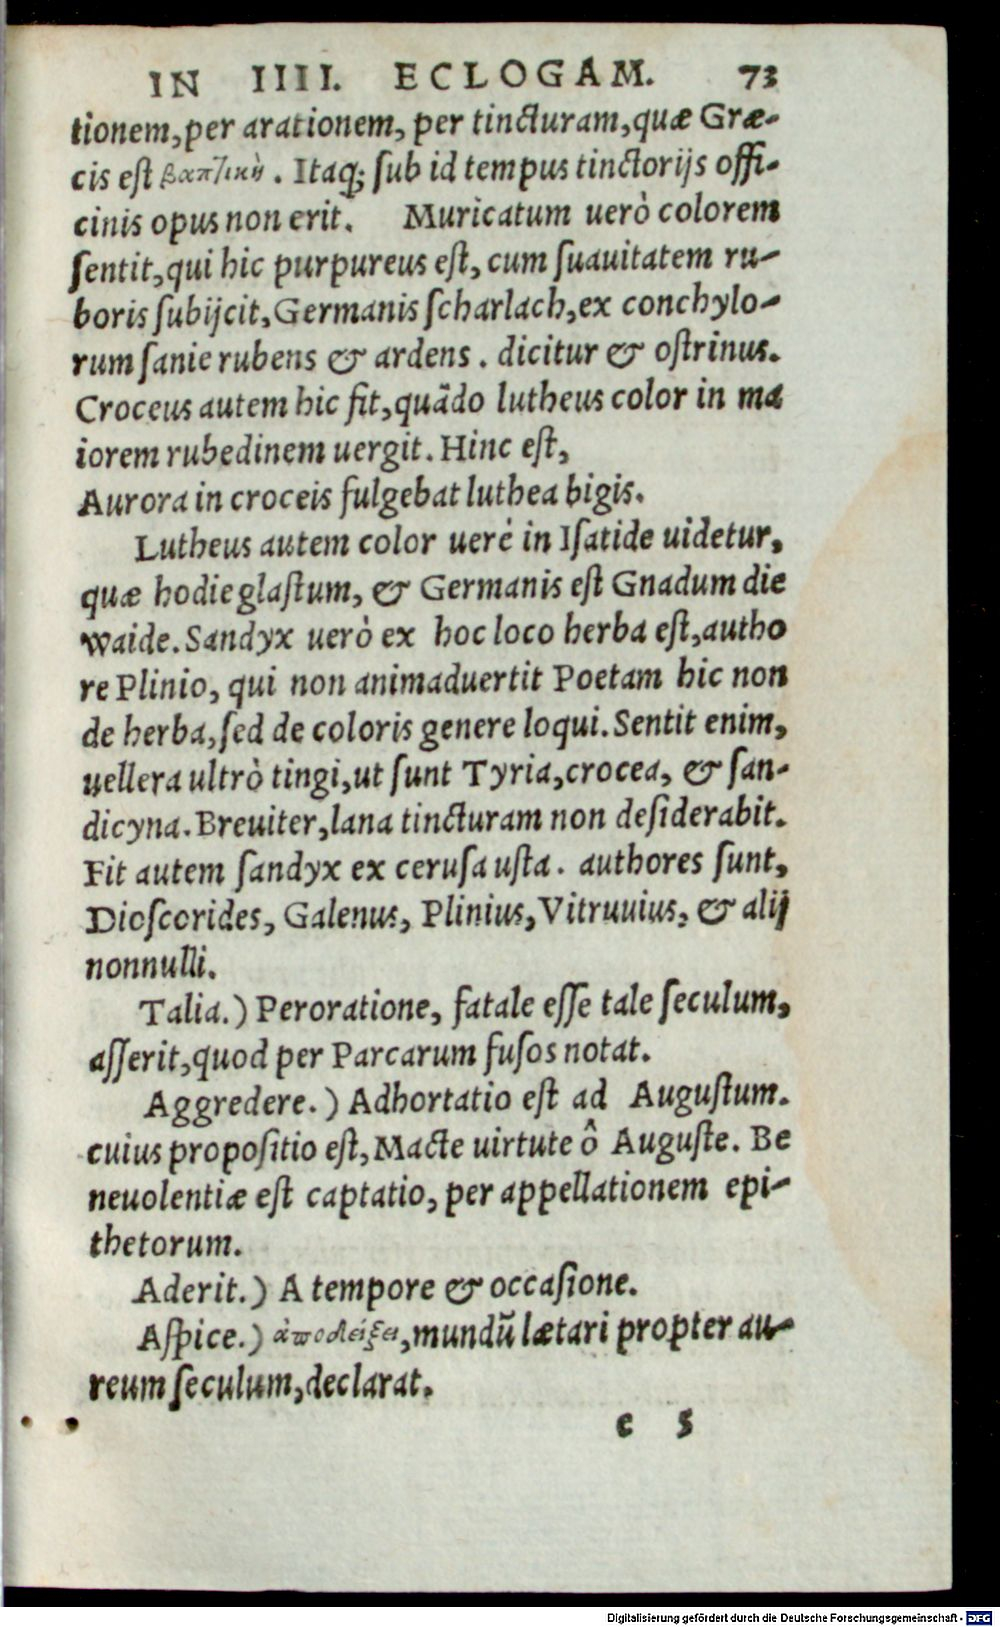 IN IIII. ECLOGAM. 73
tionem, per arationem, per tincturam, quæ Græ-
cis est βαπτικὴ. Itaq; sub id tempus tinctorijs offi-
cinis opus non erit. Muricatum uerò colorem
sentit, qui hic purpureus est, cum suauitatem ru-
boris subijcit, Germanis scharlach, ex conchylo-
rum sanie rubens & ardens. dicitur & ostrinus.
Croceus autem hic fit, quãdo lutheus color in ma
iorem rubedinem uergit. Hinc est,
Aurora in croceis fulgebat luthea bigis.
Lutheus autem color uerè in Isatide uidetur,
quæ hodie glastum, & Germanis est Gnadum die
waide. Sandyx uerò ex hoc loco herba est, autho
re Plinio, qui non animaduertit Poetam hic non
de herba, sed de coloris genere loqui. Sentit enim,
uellera ultrò tingi, ut sunt Tyria, crocea, & san-
dicyna. Breuiter, lana tincturam non desiderabit.
Fit autem sandyx ex cerusa usta. authores sunt,
Dioscorides, Galenus, Plinius, Vitruuius, & alij
nonnulli.
Talia.) Peroratione, fatale esse tale seculum,
asserit, quod per Parcarum fusos notat.
Aggredere.) Adhortatio est ad Augustum.
cuius propositio est, Macte uirtute ô Auguste. Be
neuolentiæ est captatio, per appellationem epi-
thetorum.
Aderit.) A tempore & occasione.
Aspice.) ἀποδείξει, mundũ lætari propter au-
reum seculum, declarat.
c 5
Digitalisierung gefördert durch die Deutsche Forschungsgemeinschaft - DFG